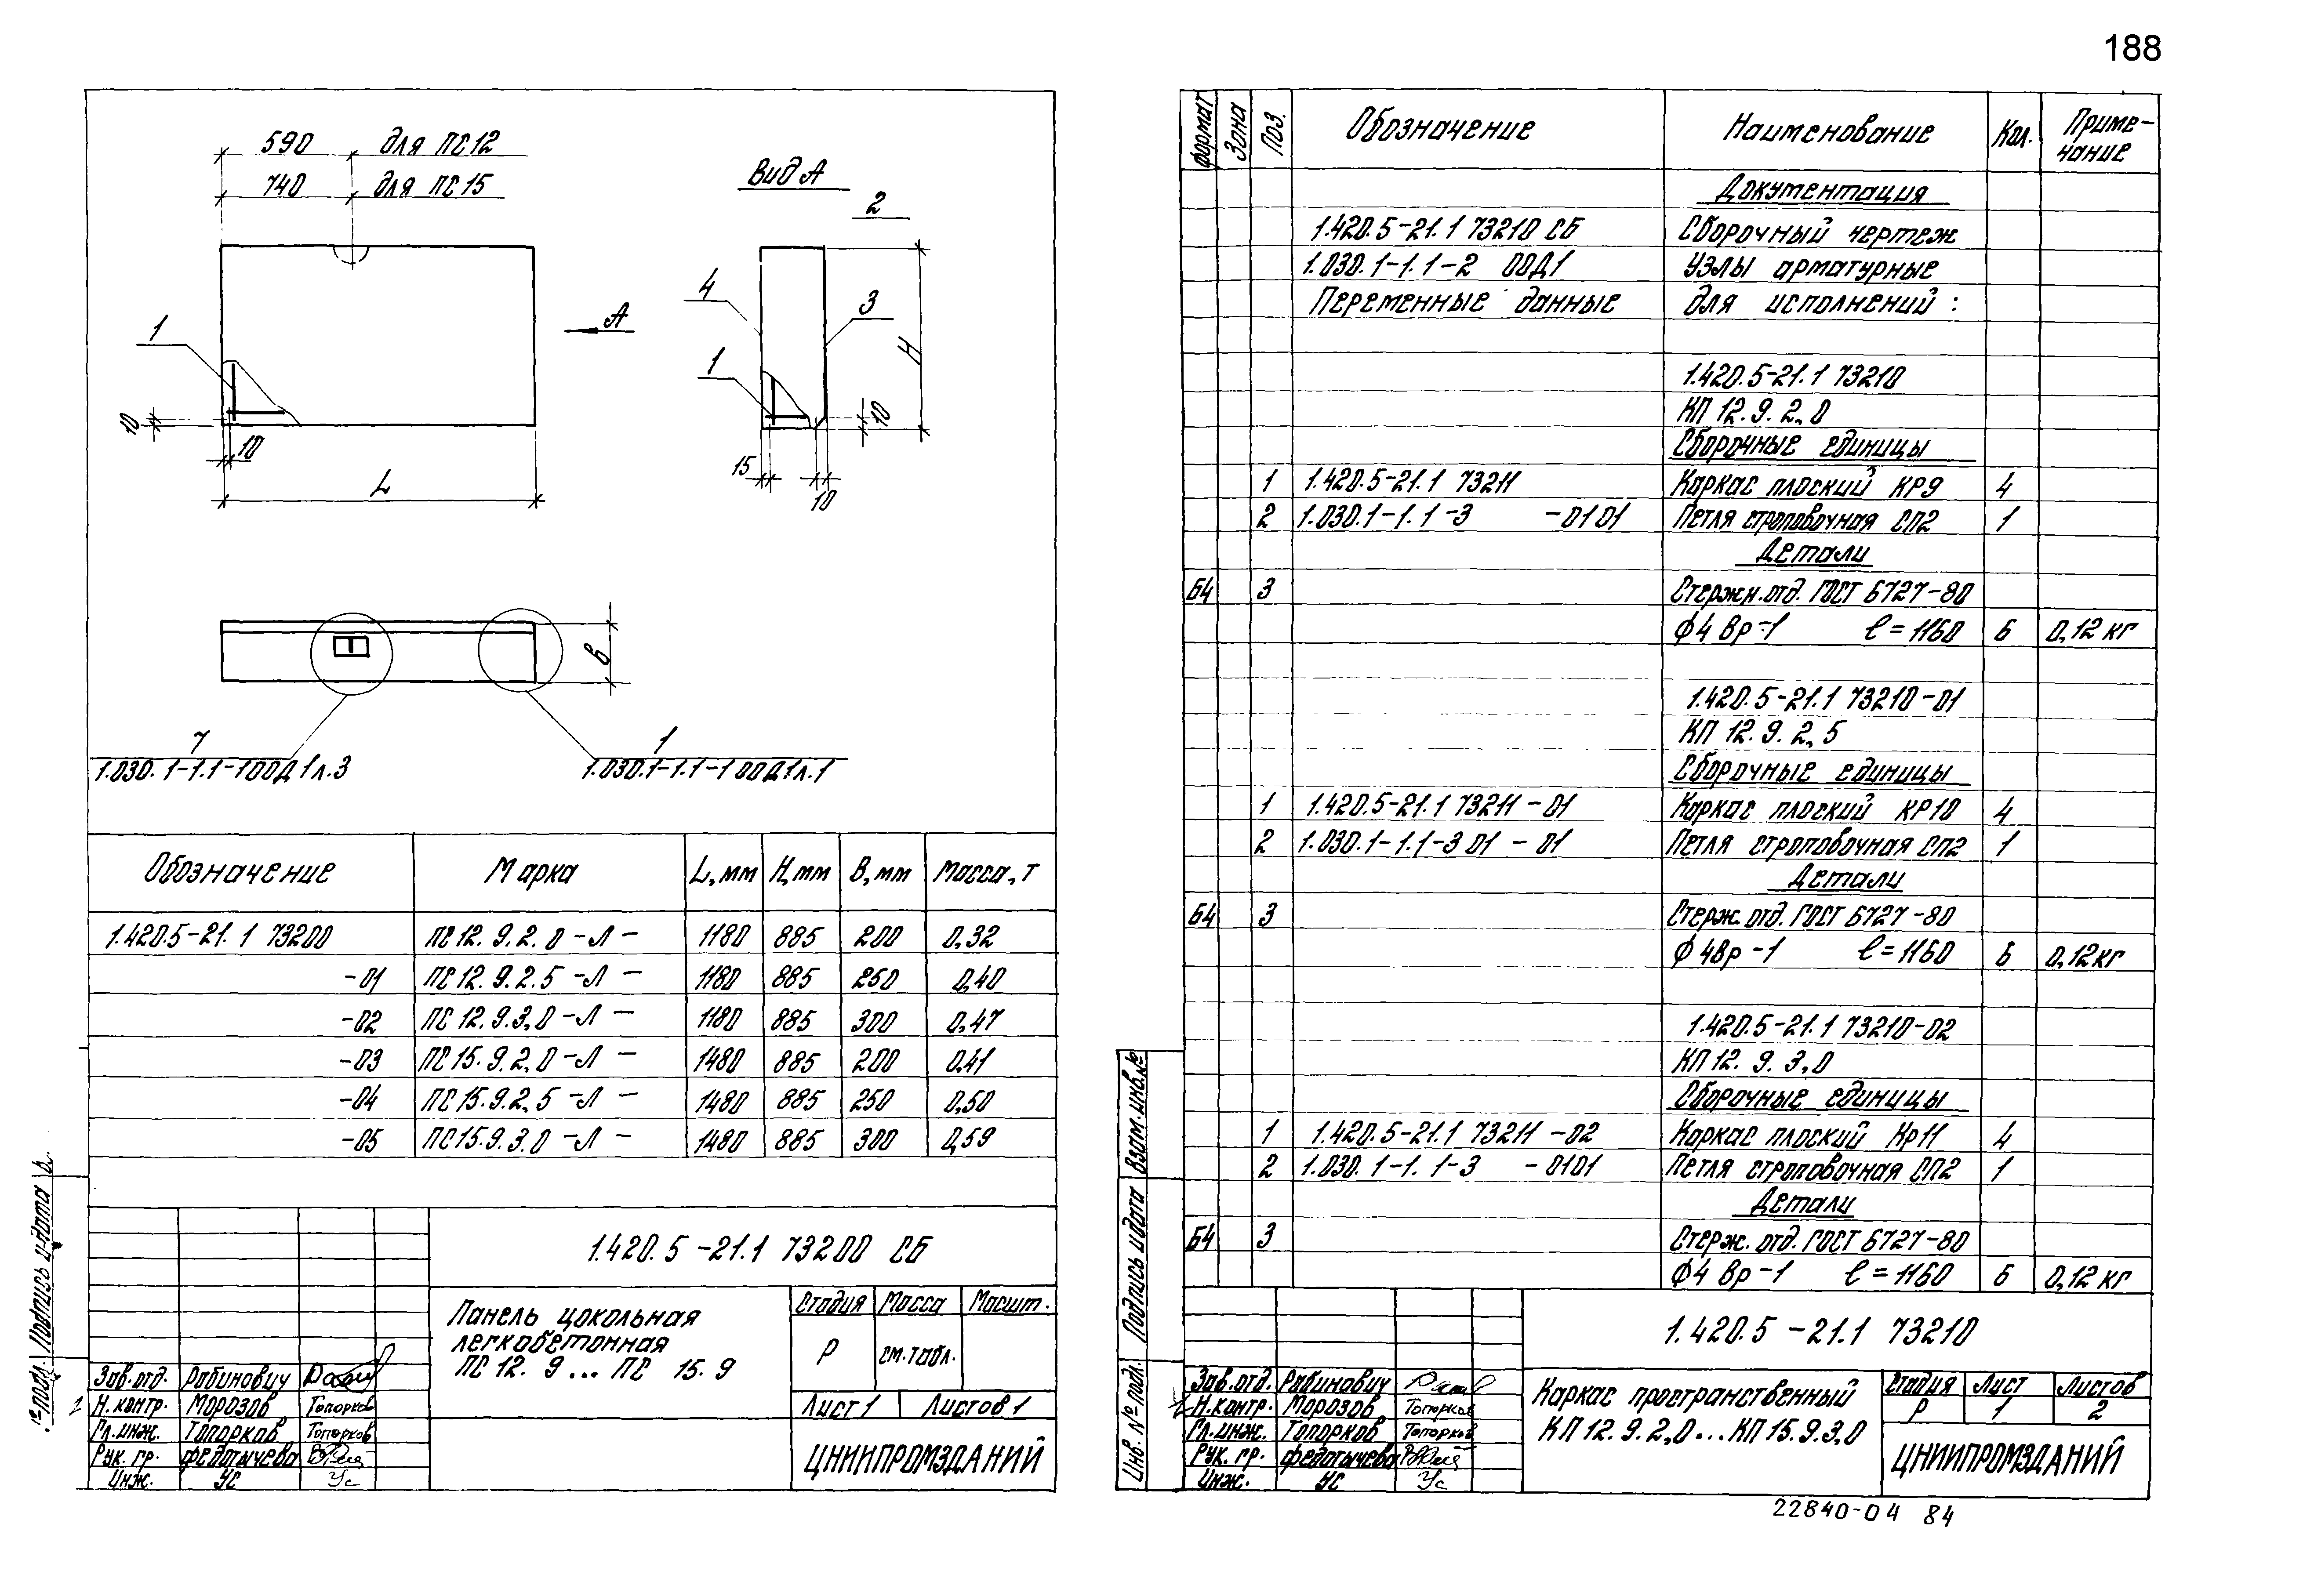 188
590 для ПС12
740 для ПС15
Вид А
2
4
3
1
А
1
H
10
10
15
10
10
L
В
7
1.030.1-1.1-1 00Д1л.3
1
1.030.1-1.1-1 00Д1л.1
Обозначение Марка L, мм H, мм В, мм Масса, т
1.420.5-21.1 73200 ПС12.9.2.0-Л- 1180 885 200 0,32
-01 ПС12.9.2.5-Л- 1180 885 250 0,40
-02 ПС 12.9.3,0-Л- 1180 885 300 0,47
-03 ПС15.9.2,0-Л- 1480 885 200 0,41
-04 ПС15.9.2,5-Л- 1480 885 250 0,50
-05 ПС15.9.3.0-Л- 1480 885 300 0,59
1.420.5-21.1 73200 СБ
Панель цокольная
легкобетонная
ПС 12. 9... ПС 15. 9
Стадия Масса Масшт.
Р см.табл.
Лист 1 Листов 1
ЦНИИПРОМЗДАНИЙ
Зав.отд. Рабинович
Н.контр. Морозов Топорков
Гл.инж. Топорков Топорков
Рук. гр. Федотычева
Инж. Ус Ус
№подл. Подпись и дата
Формат Зона Поз. Обозначение Наименование Кол. Приме-
чание
Документация
1.420.5-21.1 73210 СБ Сборочный чертеж
1.030.1-1.1-2 00Д1 Узлы арматурные
Переменные данные для исполнений:
1.420.5-21.1 73210
КП 12.9.2,0
Сборочные единицы
1 1.420.5-21.1 73211 Каркас плоский КР9 4
2 1.030.1-1.1-3 -0101 Петля строповочная СП2 1
Детали
Б4 3 Стержн.отд. ГОСТ 6727-80
ф4 Вр-1 l=1160 6 0,12 кг
1.420.5-21.1 73210-01
КП 12.9.2,5
Сборочные единицы
1 1.420.5-21.1 73211-01 Каркас плоский КР10 4
2 1.030.1-1.1-3 01-01 Петля строповочная СП2 1
Детали
Б4 3 Стерж.отд. ГОСТ 6727-80
ф 4Вр-1 l=1160 6 0,12кг
1.420.5-21.1 73210-02
КП 12. 9. 3,0
Сборочные единицы
1 1.420.5-21.1 73211-02 Каркас плоский Кр11 4
2 1.030.1-1.1-3 -0101 Петля строповочная СП2 1
Детали
Б4 3 Стерж.отд. ГОСТ 6727-80
ф4 Вр-1 l=1160 6 0,12 кг
1.420.5-21.1 73210
Каркас пространственный
КП 12.9.2,0...КП 15.9.3,0
Стадия Лист Листов
Р 1 2
ЦНИИПРОМЗДАНИЙ
Зав.отд. Рабинович
Н.контр. Морозов Топорков
Гл.инж. Топорков Топорков
Рук. гр. Федотычева
Инж. Ус Ус
Инв.№подл. Подпись и дата Взам.инв.№
22840-04 84